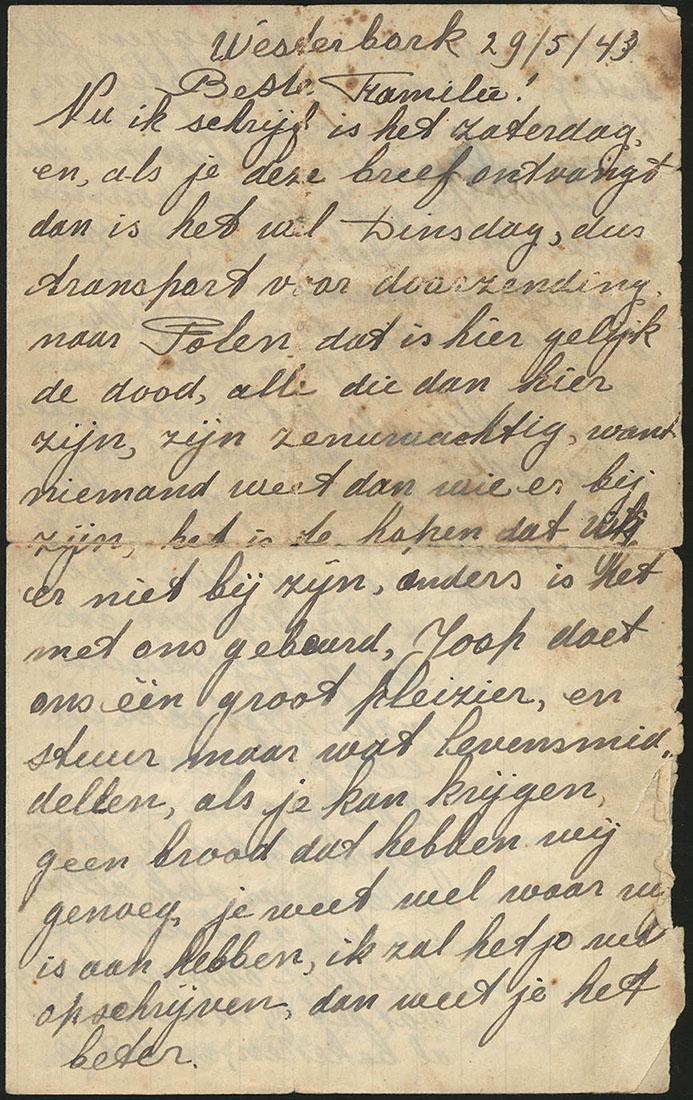 Westerbork 29/5/43
Beste Familie!
Nu ik schrijf is het zaterdag,
en, als je deze breef ontvangt
dan is het wel Dinsdag, dus
transport voor doorzending
naar Polen, dat is hier gelijk
de dood, alle die dan hier
zijn, zijn zenuwachtig, want
niemand weet dan wie er bij
zijn, het is te hopen dat wij
er niet bij zijn, anders is het
met ons gebeurd, Joop doet
ons één groot pleizier, en
stuur maar wat levensmid,
dellen, als je kan krijgen,
geen brood dat hebben wij
genoeg, je weet wel waar w
is aan hebben, ik zal het je wel
opschrijven, dan weet je het
beter.